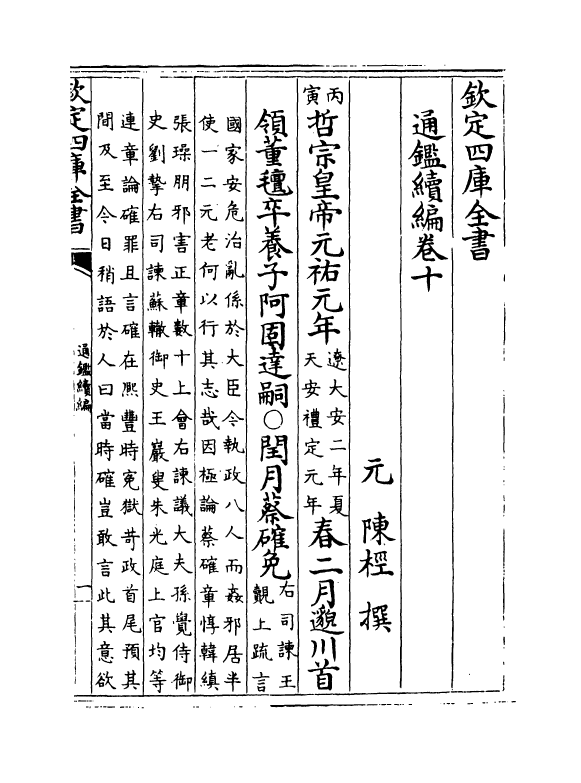 欽定四庫全書
通鑑續編卷十
元 陳桱 撰
丙寅哲宗皇帝元祐元年遼大安二年夏天安禮定元年春二月邈川首
領董氊卒養子阿固達嗣○閏月蔡確免右司諫王覿上疏言
國家安危治亂係於大臣今執政八人而姦邪居半
使一二元老何以行其志哉因極論蔡確章惇韓縝
張璪朋邪害正章數十上會右諫議大夫孫覺侍御
史劉摯右司諫蘇轍御史王巖叟朱光庭上官均等
連章論確罪且言確在熙豐時寃獄苛政首尾預其
間及至今日稍語於人曰當時確豈敢言此其意欲
欽定四庫全書
通鑑續編
一